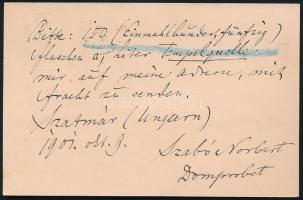 Bitte: 150 (Einmahlhundert fünfzig)
Flaschen a 1 liter Tempelquelle
mir, auf meine adresse, mit
Fracht zu senden.
Szatmár (Ungarn)
1901. okt. 9. Szabó Norbert
Domprobst